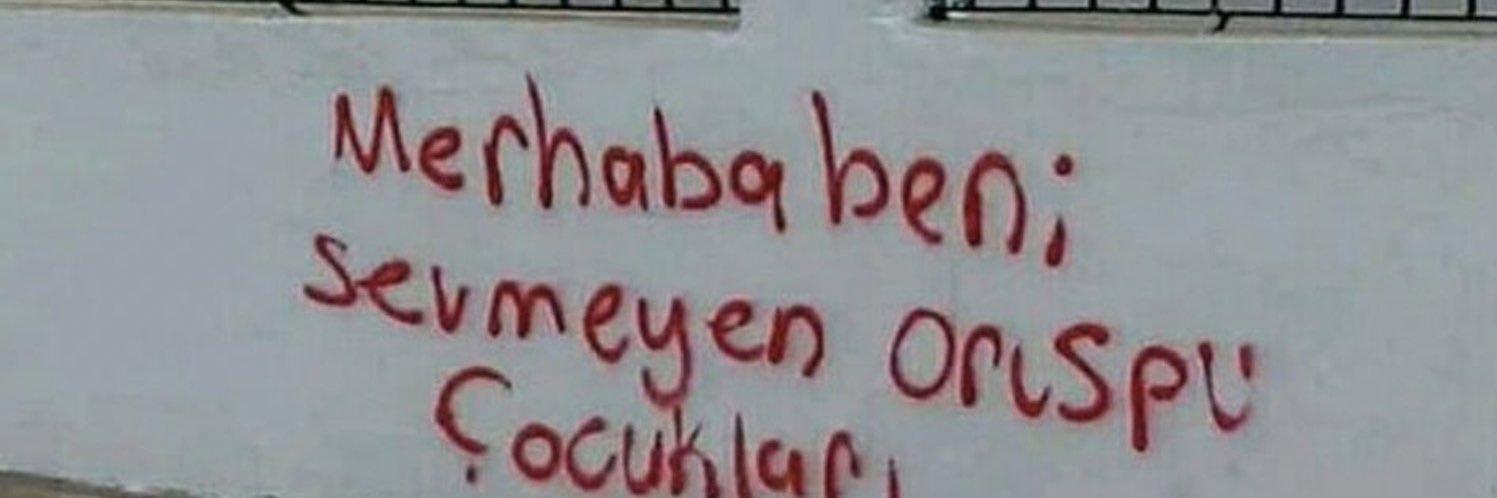 Merhaba beni
sevmeyen orıspu
Çocukları